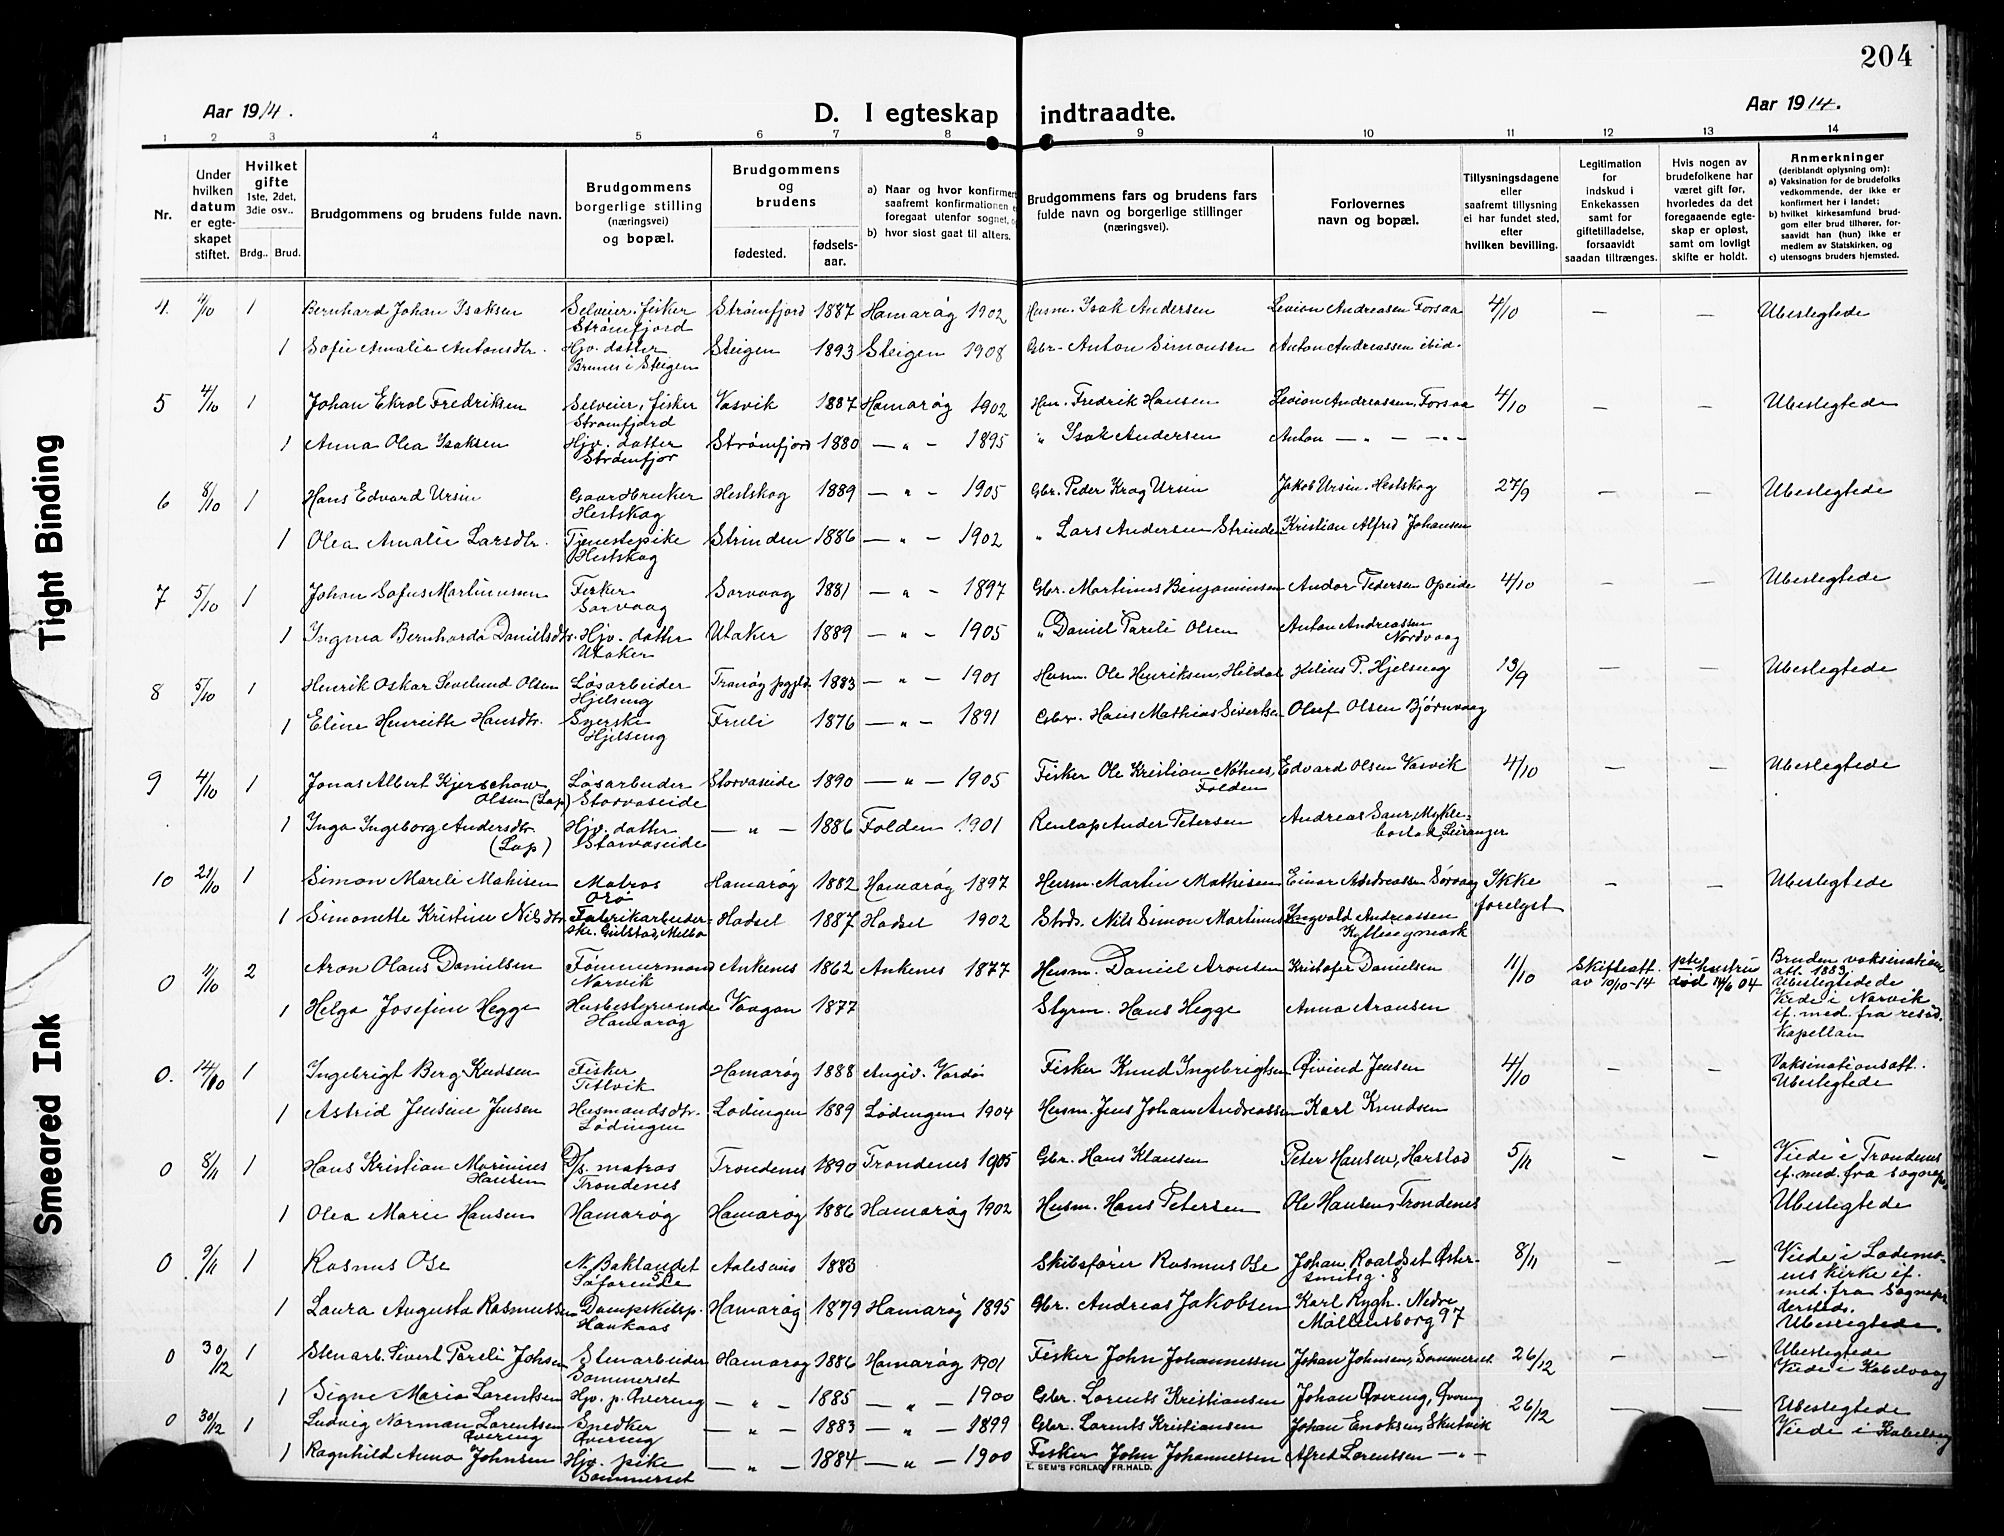 204
Aar 1914.
D. I egteskap indtraadte.
Aar 1914.
1 2 3 4 5 6 7 8 9 10 11 12 13 14
Nr.
Under hvilken datum er egteskapet stiftet.
Hvilket gifte 1ste, 2det, 3die osv..
Brdg.. Brud.
Brudgommens og brudens fulde navn.
Brudgommens borgerlige stilling (næringsvei) og bopæl.
Brudgommens og brudens
fødested.
fødsels-aar.
a) Naar og hvor konfirmert saafremt konfirmationen foregaat utenfor sognet,
b) hvor sidst gaat til alters.
Brudgommens fars og brudens fars fulde navn og borgerlige stillinger (næringsvei).
Forlovernes navn og bopæl.
Tillysningsdagene eller saafremt tillysning ei har fundet sted, efter hvilken bevilling.
Legitimation for indskud i Enkekassen samt for giftetilladelse, forsaavidt saadan tiltrænges.
Hvis nogen av brudefolkene har været gift før, hvorledes da det foregaaende egteskap er opløst, samt om lovligt skifte er holdt.
Anmerkninger (deriblandt oplysning om):
a) Vaksination for de brudefolks vedkommende, der ikke er konfirmert her i landet;
b) hvilket kirkesamfund brudgom eller brud tilhører, forsaavidt han (hun) ikke er medlem av Statskirken, og
c) utensogns bruders hjemsted.
4. 4/10 1 Bernhard Johan Isaksen Selveier, fisker Strømfjord Strømfjord 1887 Hamarøy 1902 Husm. Isak Andersen Levion Andreasen Forsaa 4/10 — — Ubeslegtede
1 Sofie Amalie Antonsdtr. Hjv. datter Brunes i Steigen Steigen 1893 Steigen 1908 Gbr. Anton Simonsen Anton Andreassen ibid.
5 4/10 1 Johan Ekrol Fredriksen Selveier, fisker Strømfjord Vasvik 1887 Hamarøy 1902 Fredrik Hansen Levion Andreassen, Forsaa 4/10 — — Ubeslegtede
1 Anna Olea Isaksen Hjv. datter Strømfjor Strømfjord 1880 — „ — 1895 „ Isak Andersen Anton — „ — — „ —
6 8/10 1 Hans Edvard Ursin Gaardbruker Hestskog Hestskog 1889 — „ — 1905 Gbr. Peder Krog Ursin Jakob Ursin, Hestskog 27/9 — — Ubeslegtede
1 Olea Amalie Larsdtr. Tjenestepike Hestskog Strinden 1886 — „ — 1902 „ Lars Andersen Strinden Kristian Alfred Johansen
7 5/10 1 Johan Sofus Martinusen Fisker Sørvaag Sørvaag 1881 — „ — 1897 Gbr. Martinus Binjaminsen Andor Pedersen Opeide 4/10 — — Ubeslegtede
1 Ingma Bernharda Danielsdtr. Hjv. datter Utaker Utaker 1889 — „ — 1905 „ Daniel Pareli Olsen Anton Andreassen Nordvaag
8 5/10 1 Henrik Oskar Sevelund Olsen Løsarbeider Hjelseng Tranøy pgjld. 1883 — „ — 1901 Husm. Ole Henriksen, Hildal P. Hjelseng 13/9 — — Ubeslegtede
1 Eline Henritte Hansdtr. Syerske Hjelseng 1876 — „ — 1891 Gbr. Hans Mathias Sivertsen Oluf Olsen Bjørnvaag
9 4/10 1 Jonas Albert Kjerschow Olsen (Lap) Løsarbeider Storvaseide Storvaseide 1890 — „ — 1905 Fisker Ole Kristian Folden Edvard Olsen Vasvik 4/10 — — Ubeslegtede
1 Inga Ingeborg Andersdtr. (Lap) Hjv. datter Storvaseide — „ — 1886 Folden 1901 Renlap Ander Petersen Andreas Saur, Myklebostad, Leiranger
10 1 Simon Mareli Mathisen Matros Hamarøy 1882 Hamarøy 1897 Husm. Martin Mathisen Einar Andreassen Sørvaag Ikke forelyst — — Ubeslegtede
1 Simonette Kristine Nilsdtr. Fabrikarbeiderske. Gulstad, Melbo Hadsel 1887 Hadsel 1902 Nils Simon Martinus Ingvald Andreassen
0 11/10 2 Aron Olaus Danielsen Tømmermand Narvik Ankenes 1862 Ankenes 1877 Husm. Daniel Aronsen Kristofer Danielsen 11/10 Skifteatt. av 10/10-14 1ste hustru død 14/6 04 Bruden vaksinations att. 1883. Ubeslegtedede Viede i Narvik ef. med. fra resid. Kapellan
1 Helga Josefine Hegge Husbestyrerinde Hamarøy Vaagan 1877 Styrm. Hans Hegge Anna Aronsen
0. 14/10 1 Ingebrigt Berg Knudsen Fisker Tiltvik Hamarøy 1888 Angiv. Vardø Fisker Knud Ingebrigtsen Øivind Jensen 4/10 — — Vaksinationsatt. Ubeslegtede
1 Astrid Jensine Jensen Husmandsdtr. Lødingen Lødingen 1889 Lødingen 1904 Husm. Jens Johan Andreassen Karl Knudsen
0 8/11 1 Hans Kristian Marinius Hansen D/s. matros Trondenes Trondenes 1890 Trondenes 1905 Gbr. Hans Klausen Peter Hansen, Harstad 5/11 — — Viede i Trondenes ef. med. fra sognepr.
1 Olea Marie Hansen Hamarøy Hamarøy 1886 Hamarøy 1902 Husm. Hans Petersen Ole Hansen, Trondenes Ubeslegtede
0 9/11 1 Rasmus Ose N. Baklandet Søfarende Aalesund 1883 Skibsfører Rasmus Ose Johan Roaldset Østersmitsg. 8 8/11 — — Viede i Lademoens Kirke ef. med. fra Sognepr. dersteds. Ubeslegtede.
1 Laura Augusta Rasmussen Dampskibsp. Haukaas Hamarøy 1879 Hamarøy 1895 Gbr. Andreas Jakobsen Karl Rygh. Nedre Møllensborg 97
0 30/12 1 Stenarb. Sivert Pareli Johnsen Stenarbeider Sommerset Hamarøy 1886 Hamarøy 1901 Fisker John Johannessen Johan Johnsen, Sommerset 26/12 — — Ubeslegtede Viede i Kabelvaag
1 Signe Maria Lorentsen Hjv. p. Øvering — „ — 1885 — „ — 1900 Gbr. Lorents Kristiansen Johan Øvering, Øvering
0 30/12 1 Ludvig Norman Lorentsen Øvering Snedker Øvering — „ — 1883 — „ — 1899 Gbr. Lorents Kristiansen Johan Enoksen, Skutvik 26/12 — — Ubeslegtede Viede i Kabelvaag
1 Ragnhild Anna Johnsen Hjv. pike Sommerset — „ — 1884 — „ — 1900 Fisker John Johannessen Alfred Lorentsen — „ —
E. SEM'S FORLAG, FR.HALD.
Tight Binding
Smeared Ink